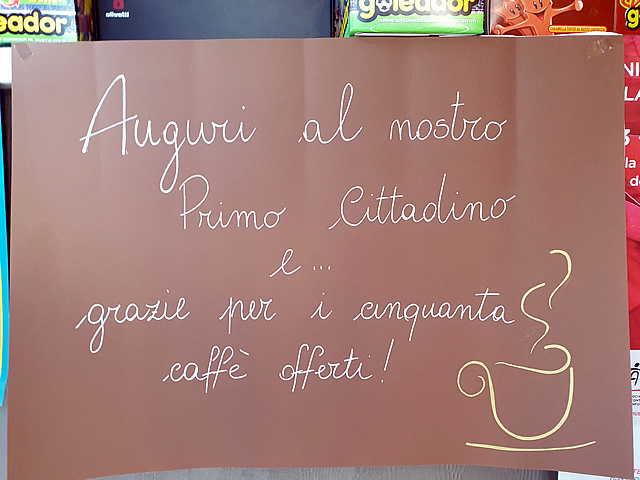 goleador
olivetti
goleador
Auguri al nostro
Primo Cittadino
e...
grazie per i cinquanta
caffè offerti!